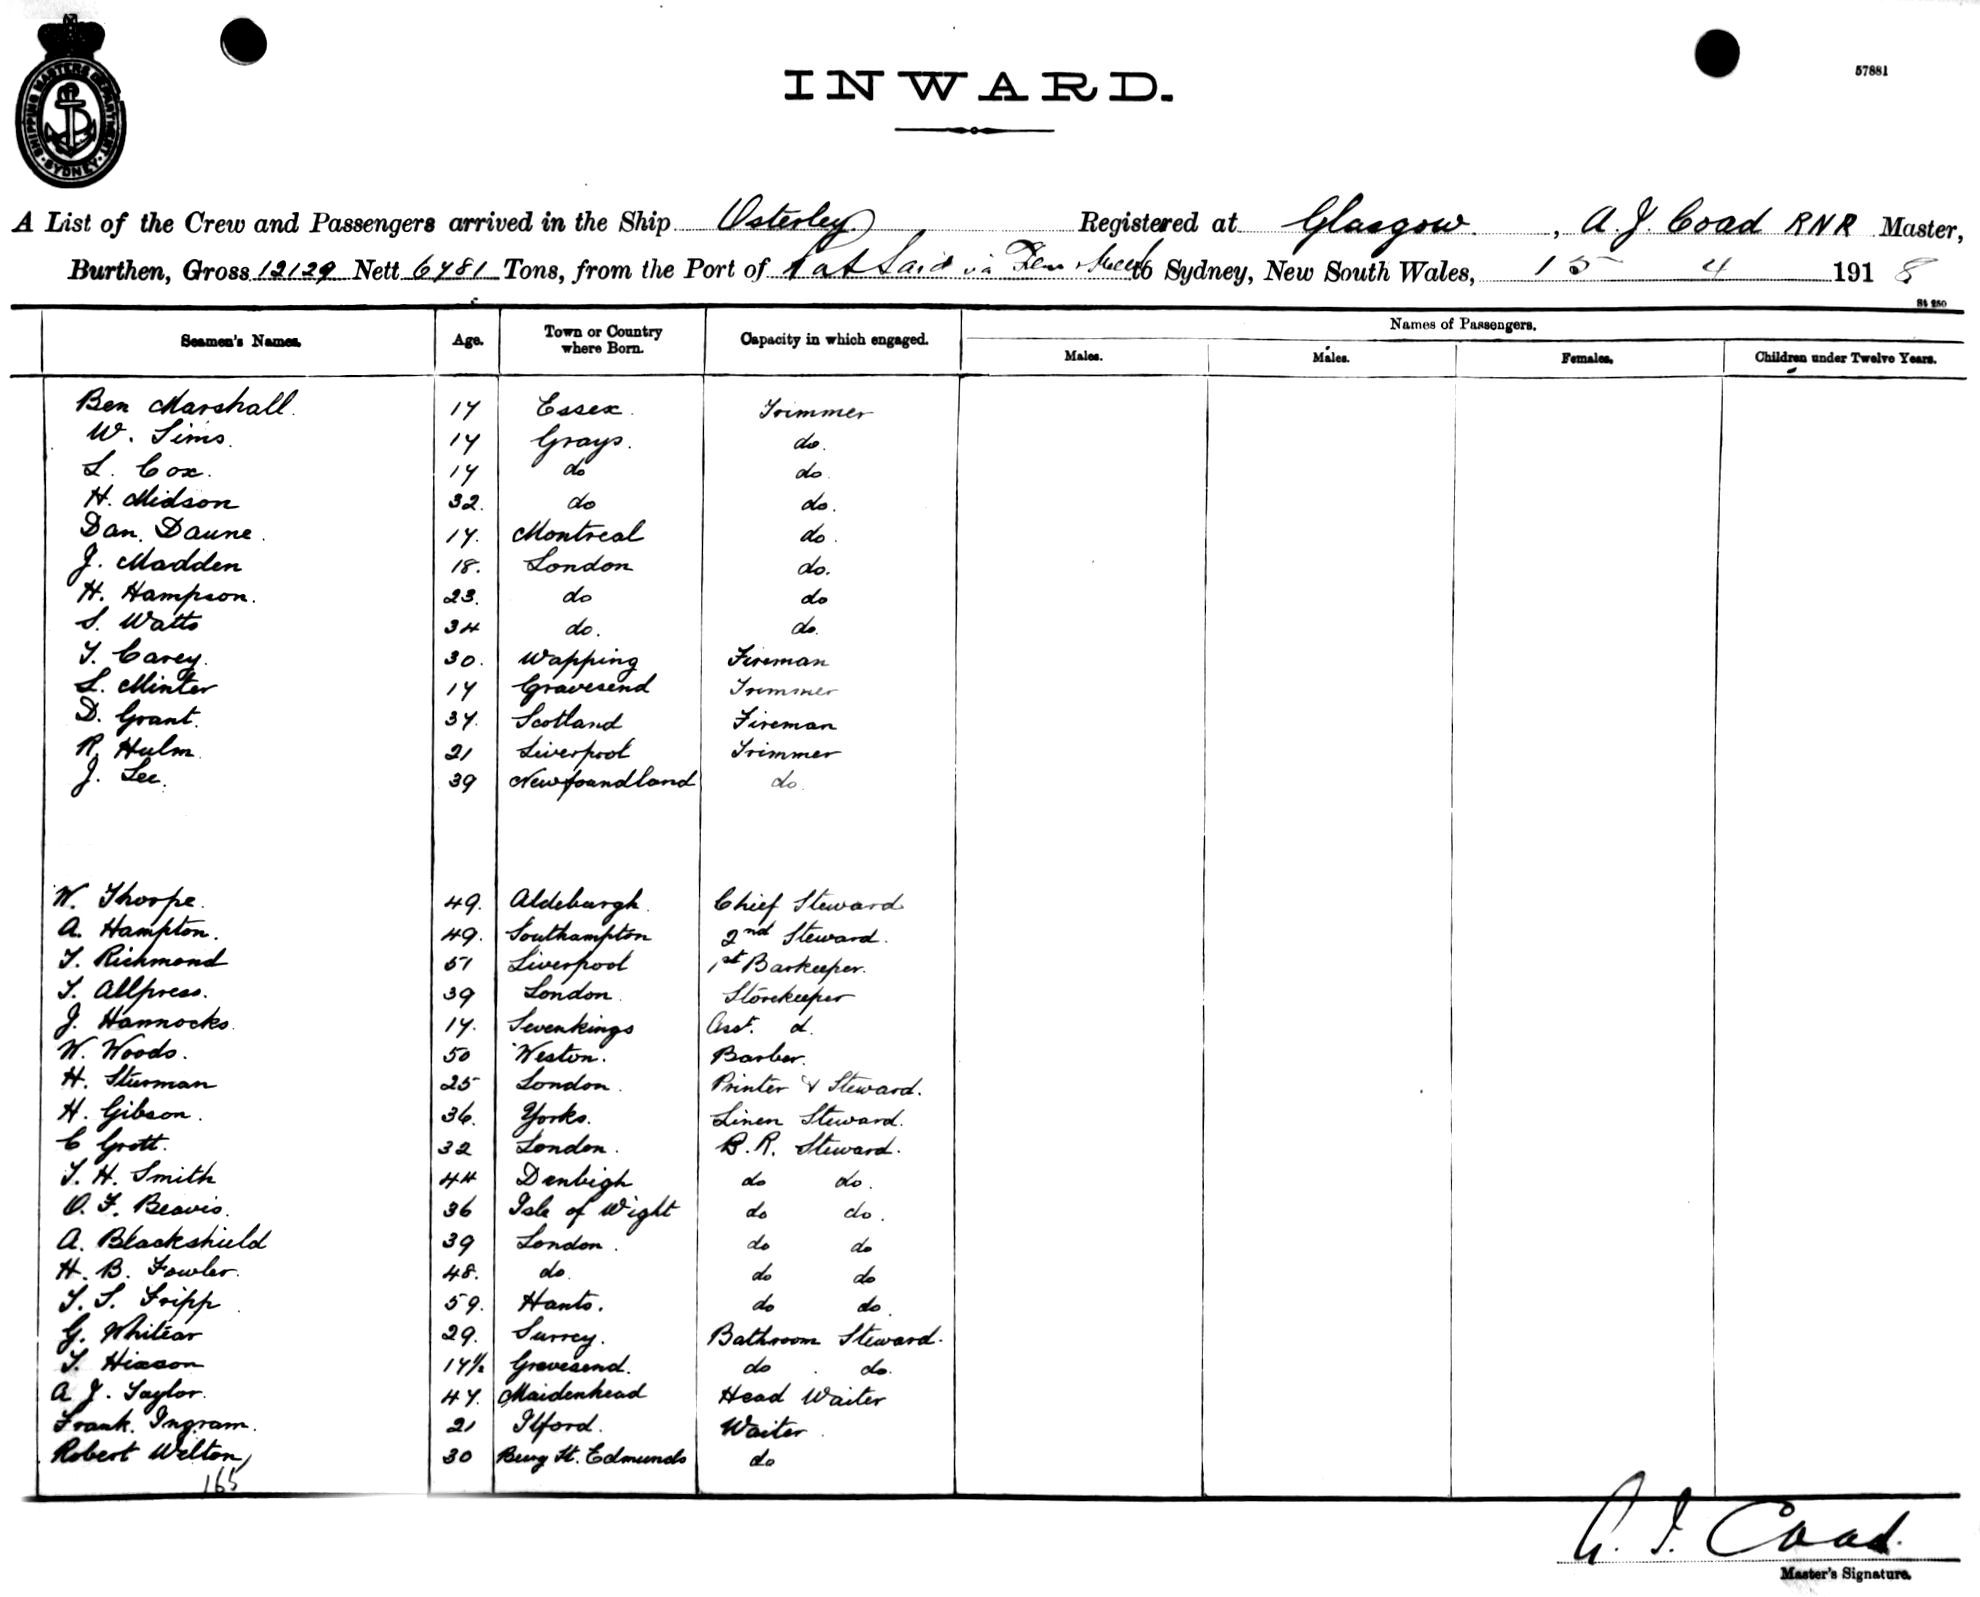 SHIPPING MASTERS DEPARTMENT SYDNEY
INWARD.
57881
A List of the Crew and Passengers arrived in the Ship Osterley Registered at Glasgow, A. J. Coad RNR Master,
Burthen, Gross 12129 Nett 6781 Tons, from the Port of Port Said via to Sydney, New South Wales, 15 4 1918
St 250
Seamen's Names. Age. Town or Country where Born. Capacity in which engaged. Names of Passengers.
Males. Males. Females. Children under Twelve Years.
Ben Marshall. 17 Essex. Trimmer
W. Sims. 17 Grays. do.
L. Cox. 17 do do.
H. Midson 32. do do.
Dan. Daune. 17. Montreal do.
J. Madden 18. London do.
H. Hampson. 23. do do
S. Watts 34 do. do.
T. Carey. 30. Wapping Fireman
L. Minter 17 Gravesend Trimmer
D. Grant. 37. Scotland Fireman
R. Hulm 21 Liverpool Trimmer
J. Lee. 39 Newfoundland do.
W. Thorpe. 49. Aldeburgh. Chief Steward
A. Hampton. 49. Southampton 2nd Steward.
T. Richmond 51 Liverpool 1st Barkeeper.
T. Allpress. 39 London. Storekeeper
J. Hannocks. 17. Sevenkings Asst. d.
W. Woods. 50 Weston. Barber.
H. Sturman 25 London. Printer & Steward.
H. Gibson. 36. Yorks. Linen Steward.
C Grott. 32 London. B. R. Steward.
T. H. Smith 44 Denbigh do do.
O. F. Beavis. 36 Isle of Wight do do.
A. Blackshield 39 London. do do
H. B. Fowler. 48. do. do do
T. S. Fripp 59. Hants. do do.
G. Whitear 29. Surrey. Bathroom Steward.
T. Hixson 17½ Gravesend. do. do.
A J. Taylor. 47. Maidenhead Head Waiter
Frank. Ingram. 21 Ilford. Waiter.
Robert Welton, 30 Bury St. Edmunds do
165
A. J. Coad.
Master's Signature.